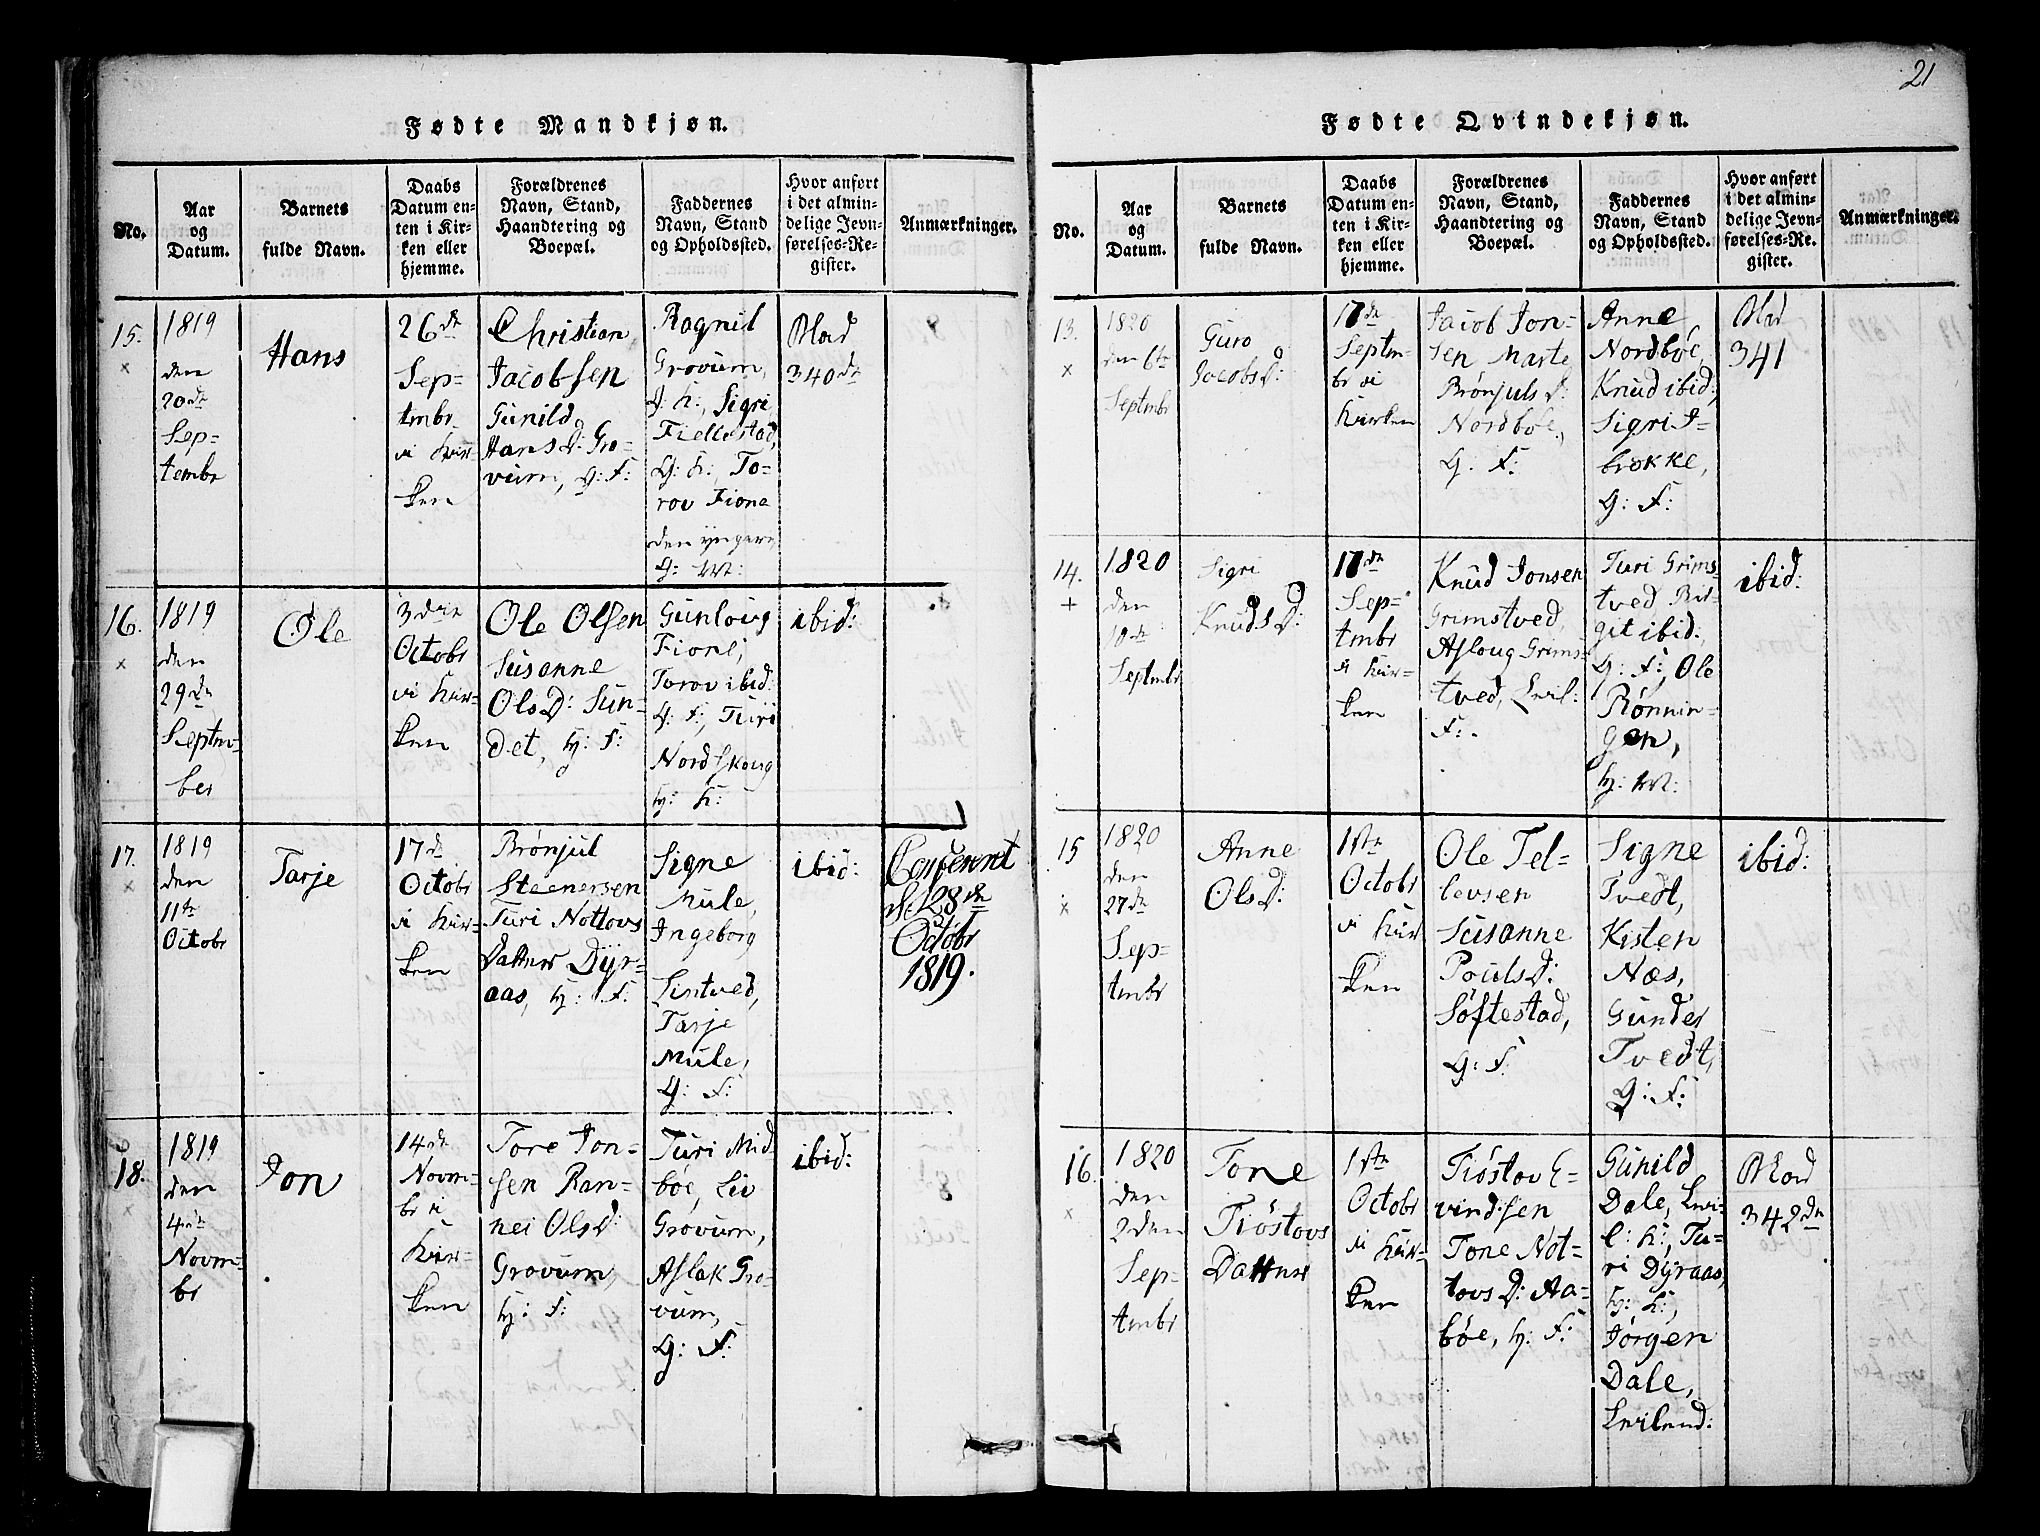 21
Fødte Mandkjøn.
No.
Aar
og
Datum.
Barnets
fulde Navn.
Daabs
Datum en-
ten i Kir-
ken eller
hjemme.
Forældrenes
Navn, Stand,
Haandtering og
Boepæl.
Faddernes
Navn, Stand
og Opholdssted.
Hvor anført
i det almin-
delige Jevn-
førelses-Re-
gister.
Anmærkninger.
15.
1819
den
20de
Sep-
tembr
Hans
26de
Sep-
tmbr
i Kir-
ken
Christian
Jacobsen
Gunild
Hans D: Gro-
vum, g: F:
Ragnil
Grovum,
g: K:, Sigri
Fiellestad,
g: K:, To-
rov Fione
den yngere,
g: M:
Blad
340de
16.
1819
den
29de
Septm-
ber
Ole
3die
Octobr
i Kir-
ken
Ole Olsen
Susanne
Ols D: Sun-
det, g: F:
Gunloug
Fione,
Torov ibid:
g: F:, Turi
Nordskoug
g: K:
ibid:
17.
1819
den
11te
Octobr
Tarje
17de
Octobr
i Kir-
ken
Brønjul
Steenersen
Turi Nottovs
Datter Dyr-
aas, g: F:
Signe
Mule,
Ingeborg
Lintved,
Tarje
Mule,
g: F:
ibid:
28de
Octobr
1819.
18.
1819
den
4de
Novm-
br
Jon
14de
Novm-
br i
Kir-
ken
Tore Jon-
sen Ran-
nei Ols D:
Grovum,
g: F:
Turi Mid-
bøe, Liv
Grovum,
Aslak Gro-
vum,
g: F:
ibid:
Fødte Qvindekjøn.
No.
Aar
og
Datum.
Barnets
fulde Navn.
Daabs
Datum en-
ten i Kir-
ken eller
hjemme.
Forældrenes
Navn, Stand,
Haandtering og
Boepæl.
Faddernes
Navn, Stand
og Opholdssted.
Hvor anført
i det almin-
delige Jevn-
førelses-Re-
gister.
Anmærkninger.
13.
1820
den 6te
Septmbr
Guro
Jacobs D:
17de
Septm-
br i
Kirken
Jacob Jon-
sen Marte
Brønjuls D:
Nordbøe,
g: F:
Anne
Nordbøe,
Knud ibid:,
Sigri S-
brokke,
g: F:
Blad
341
14.
1820
den
10de
Septmbr
Sigri
Knuds D:
17de
Sep-
tmbr
i Kir-
ken
Knud Jonsen
Grimstved,
Asloug Grims-
tved, Leil:
F:
Turi Grims-
tved, Bir-
git ibid:,
g: F: Ole
Rønnin-
gen,
g: M:
ibid:
15
1820
den
27de
Sep-
tmbr
Anne
Ols D:
1ste
Octobr
i Kir
ken
Ole Tel-
levsen
Susanne
Pouls D:
Søftestad,
g: F:
Signe
Tvedt,
Kisten
Næs,
Gunder
Tvedt,
g: F:
ibid:
16.
1820
den
2den
Sep-
tmbr
Tone
Tiøstovs
Datter
1ste
Octobr
i Kir-
ken
Tiøstov E-
vindsen
Tone Not-
tovs D: Aa-
bøe, g: F:
Gunild
Dale, Lei-
l: K:, Tu-
ri Dyraas,
g: K:,
Jørgen
Dale,
Leilend:
Blad
342de